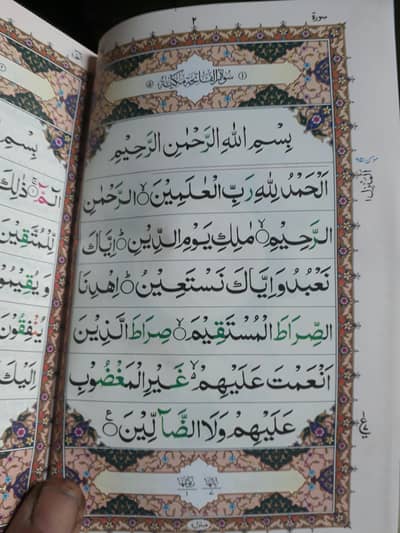 سورة
٢
بِسْمِ اللهِ الرَّحْمٰنِ الرَّحِيْمِ
اَلْحَمْدُ لِلّٰهِ رَبِّ الْعٰلَمِيْنَ ۙ الرَّحْمٰنِ
الرَّحِيْمِ ۙ مٰلِكِ يَوْمِ الدِّيْنِ ؕ اِيَّاكَ
نَعْبُدُ وَ اِيَّاكَ نَسْتَعِيْنُ ؕ اِهْدِنَا
الصِّرَاطَ الْمُسْتَقِيْمَ ۙ صِرَاطَ الَّذِيْنَ
اَنْعَمْتَ عَلَيْهِمْ ۙ غَيْرِ الْمَغْضُوْبِ
عَلَيْهِمْ وَلَا الضَّآلِّيْنَ
بِسْمِ
ذٰلِكَ
لِّلْمُتَّقِيْنَ
وَ يُقِيْمُو
يُنْفِقُوْنَ
اِلَيْكَ